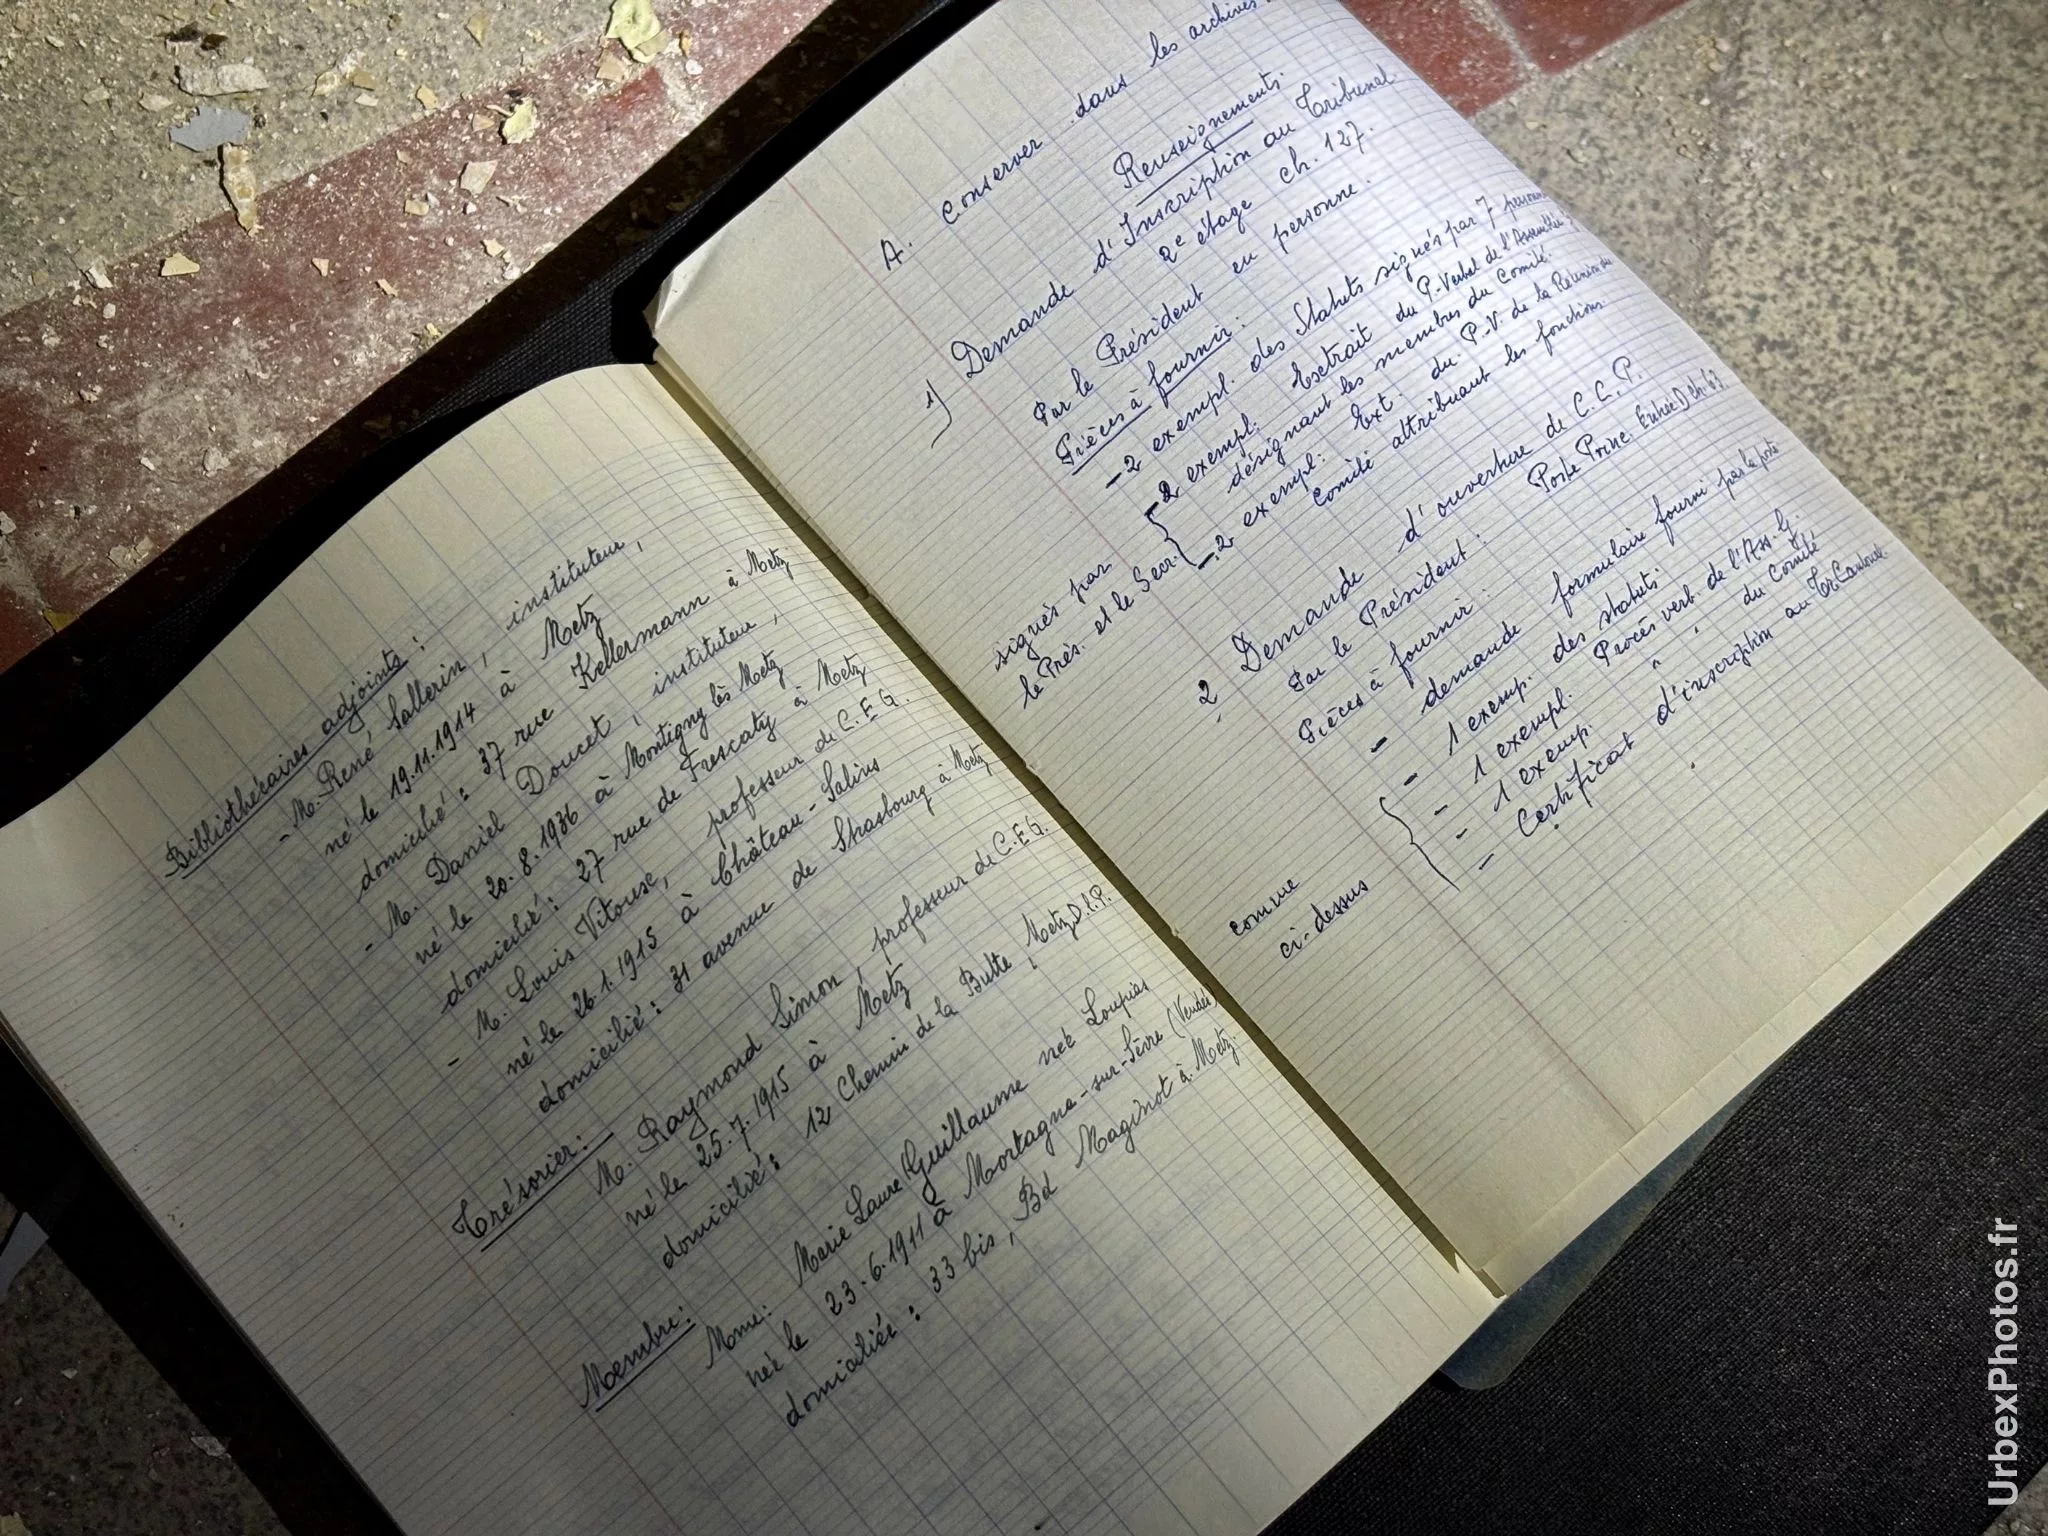 Bibliothécaires adjoints :
- M. René Sallerin, instituteur,
né le 19.11.1914 à Metz
domicilié : 37 rue Kellermann à Metz
- M. Daniel Doucet, instituteur,
né le 20.8.1936 à Montigny lès Metz
domicilié : 27 rue de Frescaty à Metz
- M. Louis Vitouse, professeur de C.E.G.
né le 26.1.1915 à Château-Salins
domicilié : 31 avenue de Strasbourg à Metz
Trésorier :
M. Raymond Simon, professeur de C.E.G.
né le 25.7.1915 à Metz
domicilié : 12 Chemin de la Butte, Metz
Membre :
Mme : Marie Laure Guillaume née Loupias
née le 23.6.1911 à Mortagne-sur-Sèvre (Vendée)
domiciliée : 33 bis, Bd Maginot à Metz.
A. conserver dans les archives
Renseignements.
1) Demande d'Inscription au Tribunal
2e étage ch. 127.
Par le Président en personne.
Pièces à fournir :
- 2 exempl. des Statuts signés par 7
- 2 exempl: Extrait du P-Verbal de l'Assemblée
désignant les membres du Comité.
- 2 exempl: Ext. du P-V. de la Réunion du
Comité attribuant les fonctions
signés par
le Prés. et le Secr.
2 Demande d'ouverture de C.C.P.
Poste Princ. Entrée D ch. 63
Par le Président :
Pièces à fournir :
- demande formulaire fourni par la poste
- 1 exemp. des statuts.
- 1 exempl. Procès verb. de l'Ass. G.
- 1 exemp. " " du Comité
- Certificat d'inscription au Tr. Cantonal.
comme
ci-dessus
UrbexPhotos.fr